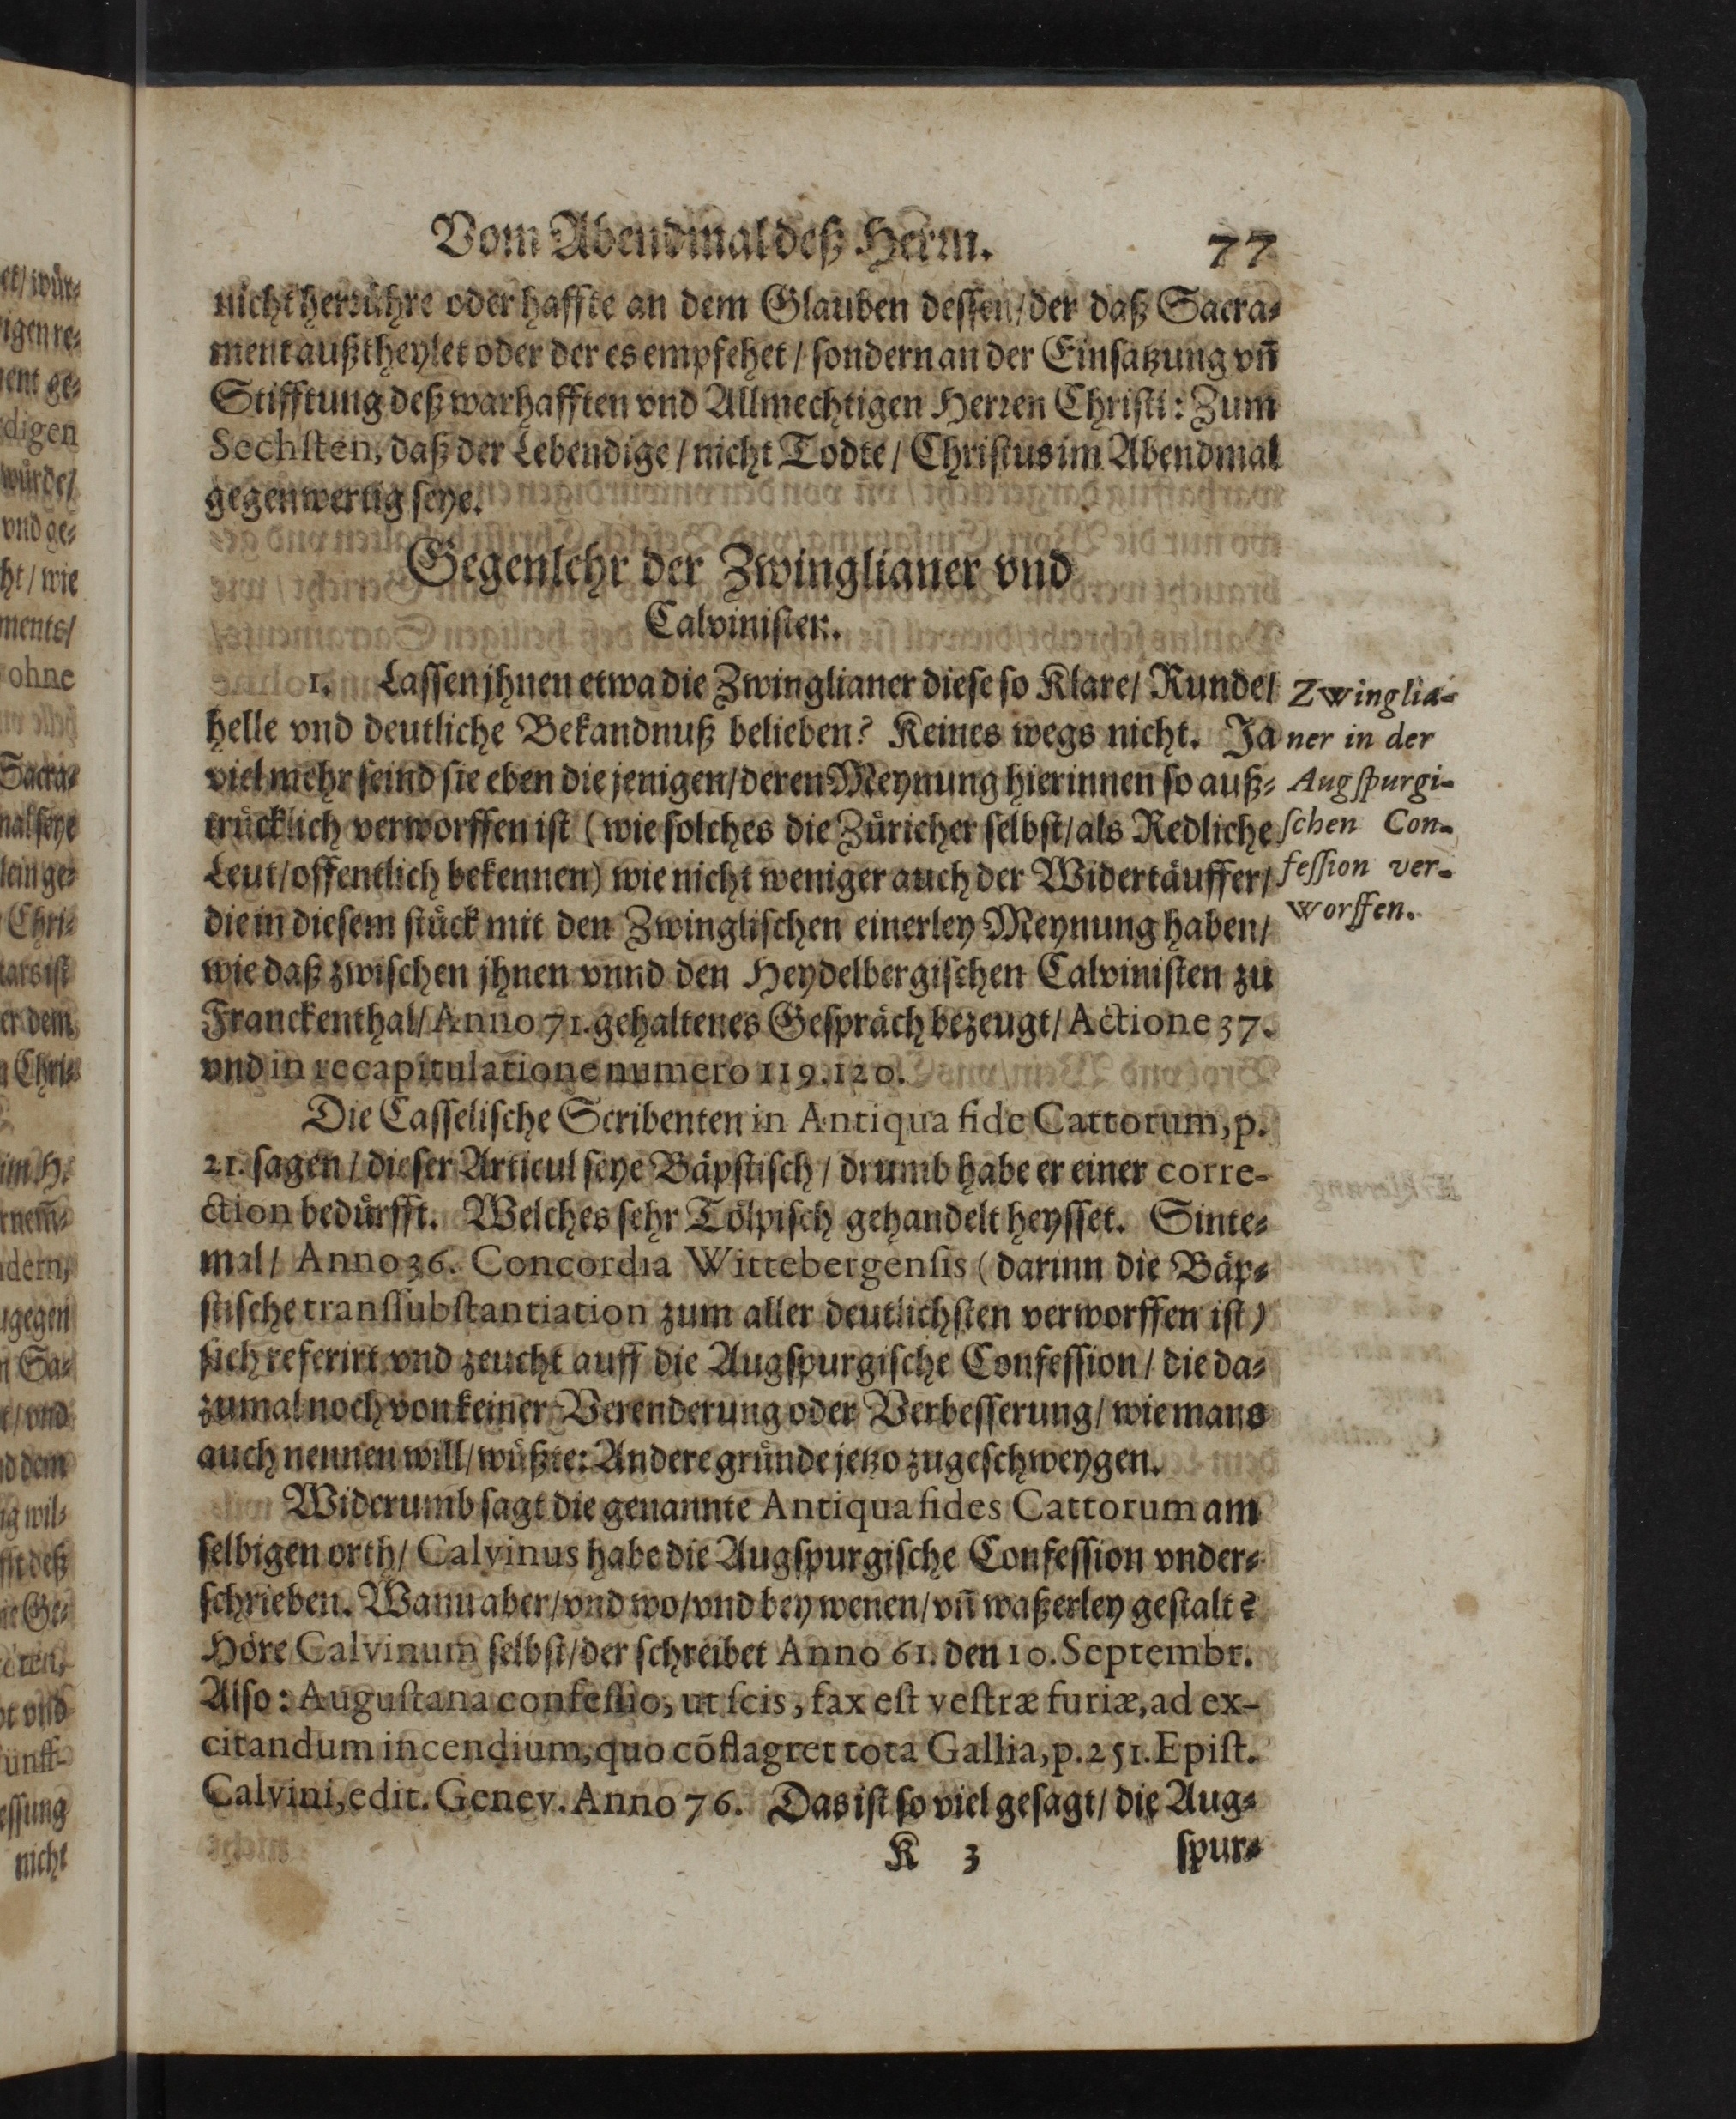 Vom Abendmal deß Herrn. 77
nicht herrühre oder haffte an dem Glauben dessen/ der daß Sacra-
ment außtheylet oder der es empfehet/ sondern an der Einsatzung vn̄
Stifftung deß warhafften vnd Allmechtigen Herren Christi: Zum
Sechsten, daß der Lebendige/ nicht Todte/ Christus im Abendmal
gegenwertig seye.
Gegenlehr der Zwinglianer vnd
Calvinisten.
1. Lassen jhnen etwa die Zwinglianer diese so Klare/ Runde/
helle vnd deutliche Bekandnuß belieben? Keines wegs nicht. Ja
viel mehr seind sie eben die jenigen/ deren Meynung hierinnen so auß-
trücklich verworffen ist (wie solches die Züricher selbst/ als Redliche
Leut/ offentlich bekennen) wie nicht weniger auch der Widertäuffer/
die in diesem stück mit den Zwinglischen einerley Meynung haben/
wie daß zwischen jhnen vnnd den Heydelbergischen Calvinisten zu
Franckenthal/ Anno 71. gehaltenes Gespräch bezeugt/ Actione 37.
vnd in recapitulatione numero 119. 120.
Zwinglia-
ner in der
Augspurgi-
schen Con-
fession ver-
worffen.
Die Casselische Scribenten in Antiqua fide Cattorum, p.
21. sagen/ dieser Articul seye Bäpstisch/ drumb habe er einer corre-
ction bedürfft. Welches sehr Tölpisch gehandelt heysset. Sinte-
mal/ Anno 36. Concordia Wittebergensis (darinn die Bäp-
stische transsubstantiation zum aller deutlichsten verworffen ist)
sich referirt vnd zeucht auff die Augspurgische Confession/ die da-
zumal noch von keiner Verenderung oder Verbesserung/ wie mans
auch nennen will/ wüßte: Andere gründe jetzo zugeschweygen.
Widerumb sagt die genannte Antiqua fides Cattorum am
selbigen orth/ Calvinus habe die Augspurgische Confession vnder-
schrieben. Wann aber/ vnd wo/ vnd bey wenen/ vn̄ waßerley gestalt?
Höre Calvinum selbst/ der schreibet Anno 61. den 10. Septembr.
Also: Augustana confessio, ut scis, fax est vestræ furiæ, ad ex-
citandum incendium, quo cõflagret tota Gallia, p. 251. Epist.
Calvini, edit. Genev. Anno 76. Das ist so viel gesagt/ die Aug-
K 3 spur-